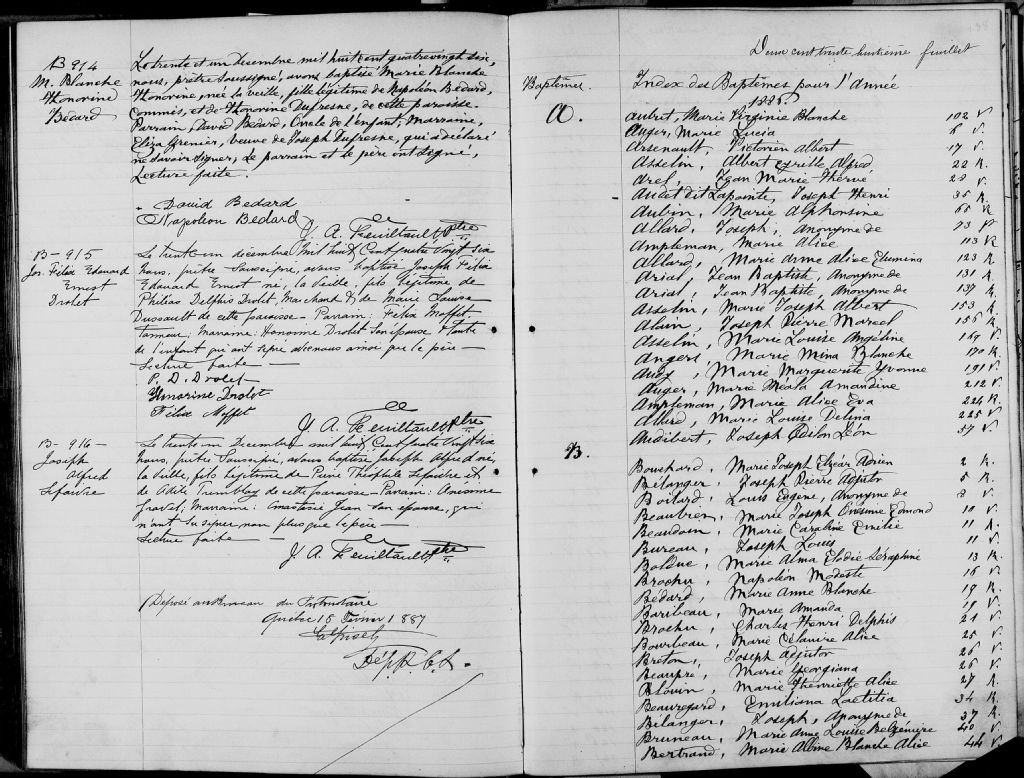 B 914
M. Blanche
Honorine
Bédard
Le trente et un Décembre mil huit cent quatre vingt six,
nous, prêtre soussigné, avons baptisé Marie Blanche
Honorine, née la veille, fille légitime de Napoléon Bédard,
Commis, et de Honorine Dufresne, de cette paroisse.
Parrain, David Bédard, Oncle de l'enfant, Marraine,
Eliza Grenier, veuve de Joseph Dufresne, qui a déclaré
ne savoir signer, Le parrain et le père ont signé,
Lecture faite.
David Bedard
Napoleon Bedard
J. A. Feuiltault ptre
B - 915
Jos. Félix Edouard
Ernest
Drolet
Le trente un décembre mil huit Cent quatre vingt six
nous, prêtre Soussigné, avons baptisé Joseph Félix
Edouard Ernest né, la veille, fils légitime de
Philias Delphis Drolet, Marchand & de Marie Louise
Dussault de cette paroisse - Parrain: Félix Moffet
tanneur; Marraine: Honorine Drolet Son épouse & tante
de l'enfant qui ont signé avec nous ainsi que le père -
Lecture faite -
P. D. Drolet
Honorine Drolet
Félix Moffet
J. A. Feuiltault ptre
B - 916 -
Joseph
Alfred
Lefaivre
Le trente un Décembre mil huit Cent quatre vingt six
nous, prêtre Soussigné, avons baptisé Joseph Alfred né,
la veille, fils légitime de Pierre Théophile Lefaivre et
de Adèle Tremblay de cette paroisse - Parrain:
Gravel; Marraine: Anastasie Jean Son épouse, qui
n'ont su signer non plus que le père -
Lecture faite -
J. A. Feuiltault ptre
Déposé au Bureau du Protonotaire
Québec 15 Février 1887
Dép. P. C. S.
Deux cent trente huitième feuillet
Baptêmes. Index des Baptêmes pour l'Année
1886
A. Aubret, Marie Virginie Blanche 102 V
Auger, Marie Lucia 6 V.
Arsenault, Victorien Albert 17 V.
Asselin, Albert Cyrille Alfred 22 R.
Arel, Jean Marie Hervé 28 V.
Audet dit Lapointe, Joseph Henri 35 R.
Aubin, Marie Alphonsine 65 R
Allard, Joseph, Anonyme de 73 V
Ampleman, Marie Alice 113 R
Allard, Marie Anne Alice Elumina 123 R
Arial, Jean Baptiste, Anonyme de 131 R
Arial, Jean Baptiste, Anonyme de 137 R.
Asselin, Marie Joseph Albert 153 R
Alain, Joseph Pierre Marcel 156 R.
Asselin, Marie Louise Angéline 169 V.
Angers, Marie Mina Blanche 170 R
Audy, Marie Marguerite Yvonne 191 V
Auger, Marie Méala Amandine 212 V
Ampleman, Marie Alice Eva 224 R.
Allard, Marie Louise Delina 225 V
Audibert, Joseph Odilon Léon 57 V
B. Bouchard, Marie Joseph Elzéar Adrien 2 R.
Bélanger, Joseph Pierre Adjutor 5 R.
Boilard, Louis Eugene, Anonyme de 8 V.
Beaubien, Marie Joseph Onésime Edmond 10 V
Beaudoin, Marie Caroline Emilie 11 R.
Bureau, Joseph Louis 11 V
Bolduc, Marie Alma Elodie Seraphine 13 R.
Brochu, Napoléon Modeste 16 V
Bédard, Marie Anne Blanche 19 R.
Baribeau, Marie Amanda 19 V.
Brochu, Charles Henri Delphis 21 V
Bourbeau, Marie Célanire Alice 25 V
Breton, Joseph Adjutor 26 V.
Beaupré, Marie Georgiana 26 V
Blouin, Marie Henriette Alice 27 R.
Beauregard, Emiliana Laetitia 34 R.
Bélanger, Joseph, Anonyme de 37 R.
Bruneau, Marie Anne Louise 40 V
Bertrand, Marie Albine Blanche Alice 44 V